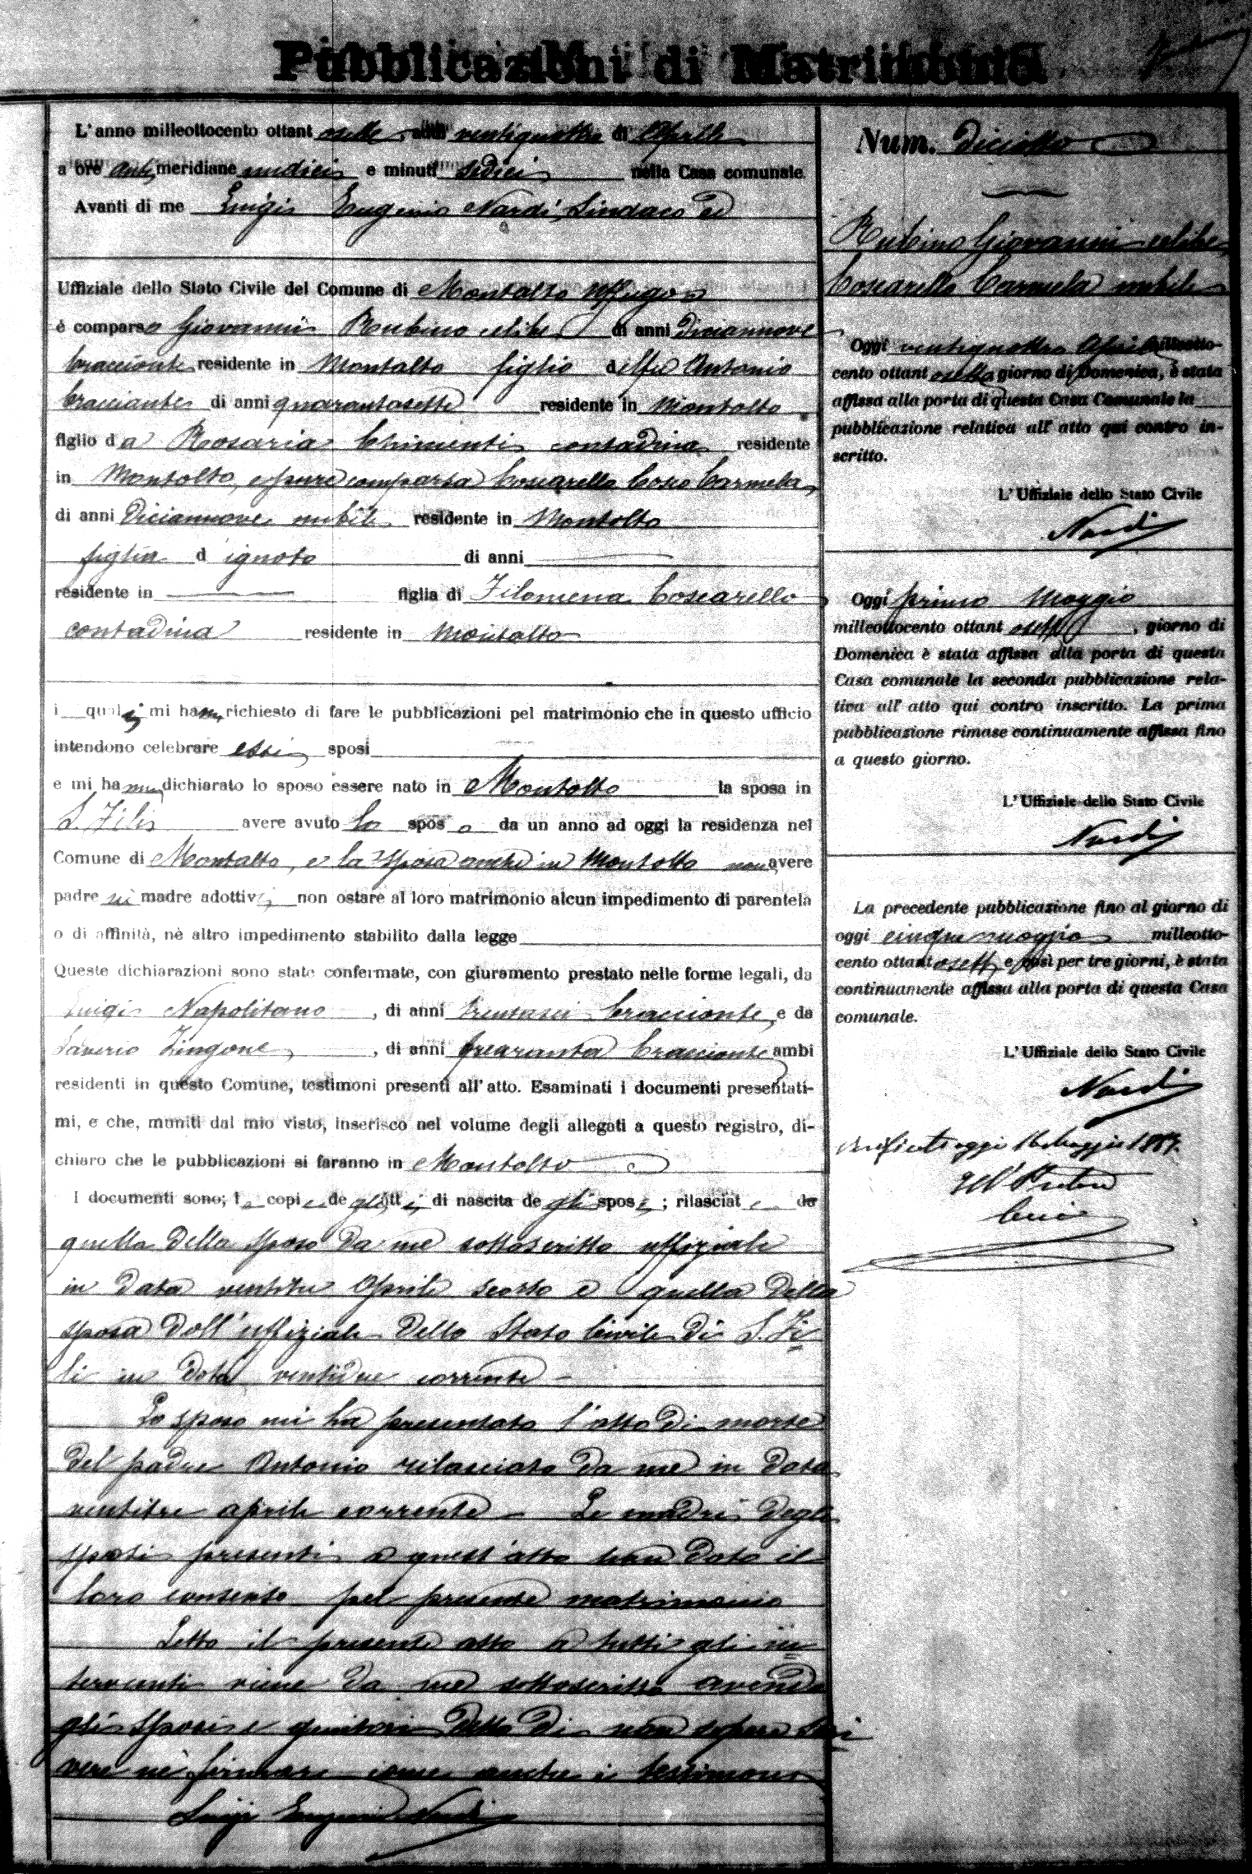 Pubblicazioni di Matrimonio
L'anno millеottocento ottant osette addi ventiquattro di Aprile
a ore anti meridiane undici e minuti sedici nella Casa comunale.
Avanti di me Luigi Eugenio Nardi, Sindaco ed
Uffiziale dello Stato Civile del Comune di Montalto Uffugo
è comparso Giovanni Rubino celibe di anni diciannove
bracciante residente in Montalto figlio del fu Antonio
bracciante di anni quarantasette residente in Montalto
figlio da Rosaria Chimenti contadina residente
in Montalto, e pure comparsa Coscarello Carmela,
di anni diciannove nubile residente in Montalto
figlia d'ignoto di anni
residente in figlia di Filomena Coscarello
contadina residente in Montalto
i quali mi hanno richiesto di fare le pubblicazioni pel matrimonio che in questo ufficio
intendono celebrare essi sposi
e mi hanno dichiarato lo sposo essere nato in Montalto la sposa in
S. Fili avere avuto lo sposo da un anno ad oggi la residenza nel
Comune di Montalto, e la sposa anche in Montalto non avere
padre nè madre adottivi, non ostare al loro matrimonio alcun impedimento di parentela
o di affinità, nè altro impedimento stabilito dalla legge
Queste dichiarazioni sono state confermate, con giuramento prestato nelle forme legali, da
Luigi Napolitano, di anni trentasei bracciante, e da
Saverio Zingone, di anni quaranta bracciante ambi
residenti in questo Comune, testimoni presenti all'atto. Esaminati i documenti presentati-
mi, e che, muniti dal mio visto, inserisco nel volume degli allegati a questo registro, di-
chiaro che le pubblicazioni si faranno in Montalto
I documenti sono; le copie degli atti di nascita degli sposi; rilasciate da
quella dello sposo da me sottoscritto uffiziale
in data ventitre Aprile scorso e quella della
sposa dall'uffiziale dello Stato Civile di S. Fi-
li in data ventidue corrente -
Lo sposo mi ha presentato l'atto di morte
del padre Antonio rilasciato da me in data
ventitre aprile corrente - Le madri degli
sposi presenti a quest'atto han dato il
loro consenso pel presente matrimonio
Letto il presente atto a tutti gli in-
tervenuti viene da me sottoscritto avendo
gli sposi e genitori detto di non sapere scri
vere nè firmare come anche i testimoni
Luigi Eugenio Nardi
Num. diciotto
Rubino Giovanni celibe
Coscarello Carmela nubile
Oggi ventiquattro Aprile milleotto-
cento ottantosette giorno di Domenica, è stata
affissa alla porta di questa Casa Comunale la
pubblicazione relativa all'atto qui contro in-
scritto.
L'Uffiziale dello Stato Civile
Nardi
Oggi primo Maggio
milleottocento ottant osette, giorno di
Domenica è stata affissa alla porta di questa
Casa comunale la seconda pubblicazione rela-
tiva all'atto qui contro inscritto. La prima
pubblicazione rimase continuamente affissa fino
a questo giorno.
L'Uffiziale dello Stato Civile
Nardi
La precedente pubblicazione fino al giorno di
oggi cinque maggio milleotto-
cento ottantosette, e così per tre giorni, è stata
continuamente affissa alla porta di questa Casa
comunale.
L'Uffiziale dello Stato Civile
Nardi
Verificato oggi 16 Maggio 1887.
Il Pretore